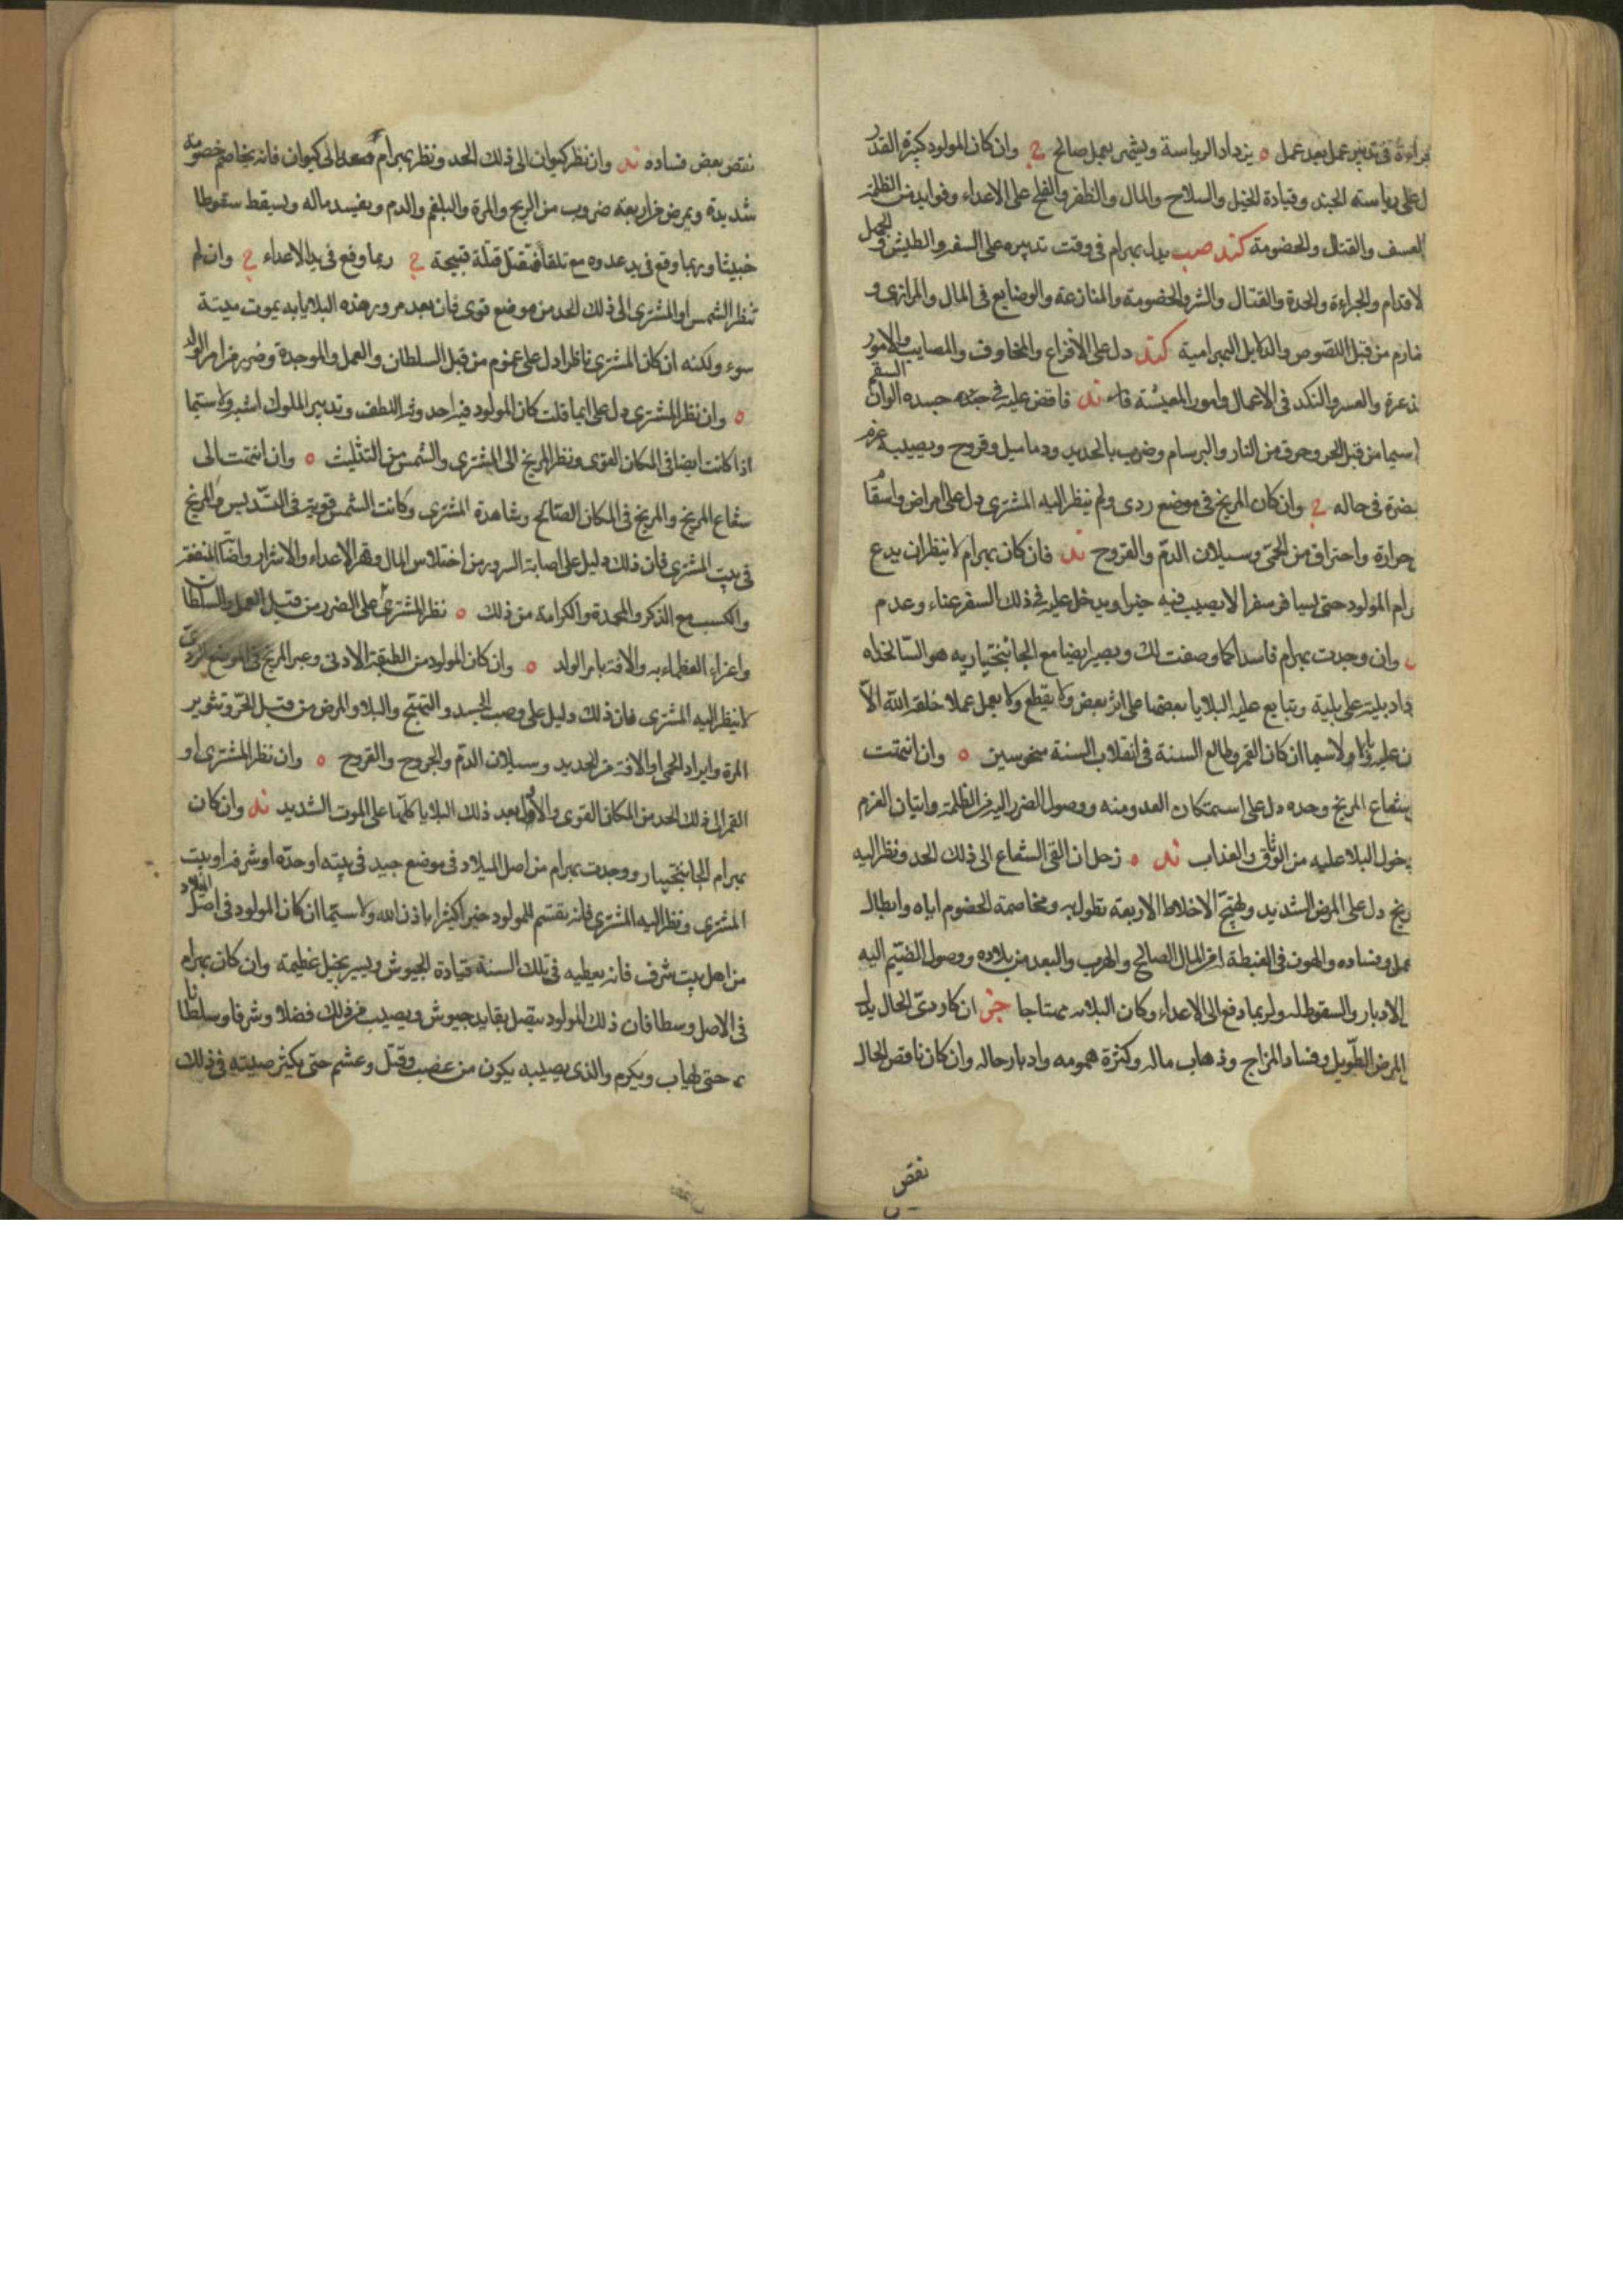 في تدبير عمل بعد عمل ه يزداد الرياسة ويشمر بعمل صالح ج وان كان المولود كبير القدر
على رياسته الجند وقيادة الخيل والسلاح والمال والظفر والفلج على الاعداء وفوايد من الظلمة
العسف والقتال والخصومة كند صب يدل بهرام في وقت تدبيره على السفر والطيش والجهل
لاقدام والجراءة والحدة والقتال والشر والخصومة والمنازعة والوضايع في المال والمرازي و
من قبل اللصوص والبهرامية كند دل على الافزاع والمخاوف والمصايب والامور
السقم
ذعرة والعسر والنكد في الاعمال وامور المعيشة ند فاقض عليه في جسده الوان
اسيما من قبل الحر وحرق من النار والبرسام وضرب بالحديد ودماميل وقروح ويصيبه غرم
بضرة في حاله ج وان كان المريخ في موضع ردى ولم ينظر اليه المشترى دل على امراض واسقا
حرارة واحتراق من الحمى وسيلان الدم والقروح ند فان كان بهرام لا ينظر ان يدع
رام المولود حتى يسيافر سفرا لا يصيب فيه خيرا ويدخل عليه في ذلك السفر عناء وعدم
وان وجدت بهرام فاسدا كما وصفت لك ويصير ايضا مع الجانبختياريه هو السالخداه
داد بلية على بلية وتبايع عليه البلايا بعضها على اثر بعض ولا يقطع ولا يعمل عملا خلقه الله الا
ن عليه ولاسيما ان كان القمر وطالع السنة في انقلاب السنة منحوسين ه وان انتهت
شعاع المريخ وحده دل على استمكان العدو منه ووصول الضرر اليه من الظلمة واتيان الغرم
دخول البلا عليه من الوثاق والعذاب ند ه زحل ان القى الشعاع الى ذلك الحد ونظر اليه
ريخ دل على المرض الشديد وتهيج الاخلاط الاربعة تطول به ومخاصمة الخصوم اياه وابطال
عمله وفساده والهون في الغبطة المال الصالح والهرب والبعد من بلاده ووصول الضيم اليه
الادبار والسقوط له ولربما دفع الى الاعداء وكان البلاء ان كا ردى الحال يدل
المرض الطويل وفساد المزاج وذهاب ماله وكثرة همومه وادبار حاله وان كان ناقص الحال
نقص
نقص بعض فساده ند وان نظر كيوان الى ذلك الحد ونظر بهرام الى كيوان فانه يخاصم خصومة
شديدة ويمرض من اربعة ضروب من الريح والمرة والبلغم والدم ويفسد ماله ويسقط سقوطا
خبيثا وربما وقع في يد عدوه مع فتقتل قتلة قبيحة ج ربما وقع في يد الاعداء ج وان لم
تنظر الشمس او المشترى الى ذلك الحد من موضع قوى فان بعد مرور هذه البلايا به يموت ميتة
سوء ولكنه ان كان المشترى ناظرا دل على غموم من قبل السلطان والعمل والموجدة وضرر من امر الولد
ه وان نظر المشترى دل على ايما قلت كان المولود فيه احد اللطف وتدبير الملوك اشبه ولا سيما
اذا كانت ايضا في المكان القوى ونظر المريخ الى المشترى والشمس من التثليث ه وان انتهت الى
شعاع المريخ والمريخ في المكان الصالح وشاهدة المشترى وكانت الشمس قوية في التسديس والمريخ
في بيت المشترى فان ذلك دليل على اصابة السرور من اختلاس المال وقهر الاعداء والاشرار المنفعة
والكسب مع الذكر والمحمدة والكرامة من ذلك ه نظر المشترى على الضرر من قبل العمل والسلطان
واعزاء العظماء به والافة بامر الولد ه وان كان المولود من الطبقة الادنى وعبر المريخ في الموضع الردى
لا ينظر اليه المشترى فان ذلك دليل على وصب الجسد والتهيج والبلاد والمرض من قبل الحر وتثوير
المرة وايراد الحمى او الافة من الحديد وسيلان الدم والجروح والقروح ه وان نظر المشترى او
القمر الى ذلك الحد من المكان القوى والا بعد ذلك البلايا كلها على الموت الشديد ند وان كان
بهرام الجانبختيار ووجدت بهرام من اصل الميلاد في موضع جيد في بيته او حده او شرفه او بيت
المشترى ونظر اليه المشترى فانه يقسم للمولود خيرا كثيرا باذن الله ولا سيما ان كان المولود في اصل الميلاد
من اهل بيت شرف فانه يعطيه في تلك السنة قيادة الجيوش ويسير بخيل عظيمة وان كان بهرام
في الاصل وسطا فان ذلك المولود يتصل بقايد جيوش ويصيب من ذلك فضلا وشرفا وسلطانا
حتى يهاب ويكرم والذى يصيبه يكون من غضب وقتل وغشم حتى يكثر صيته في ذلك